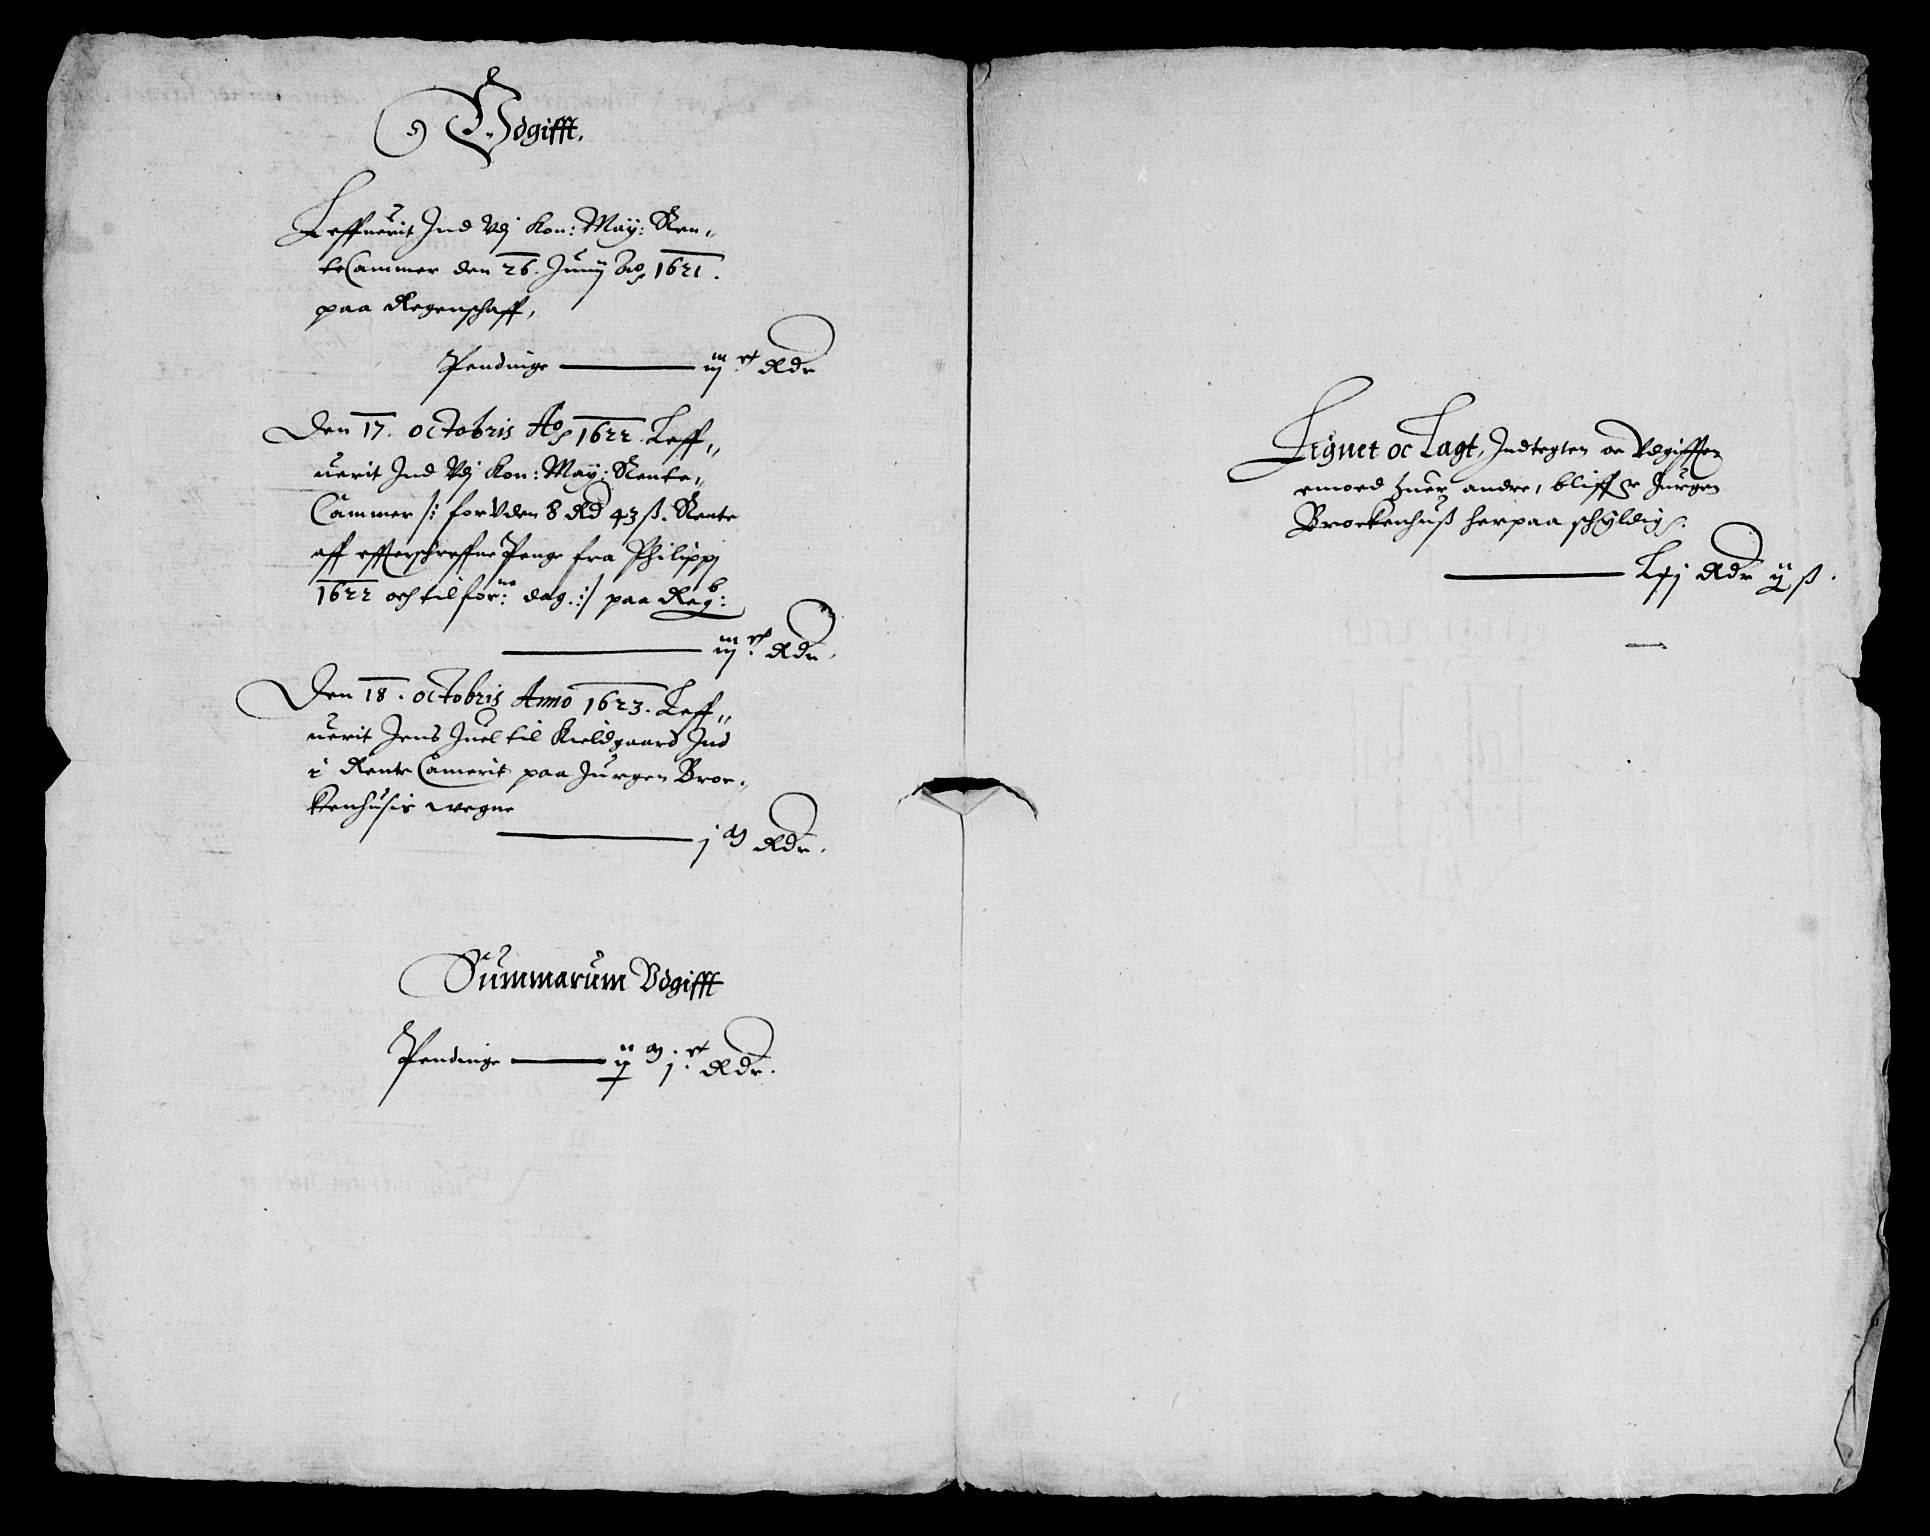 Vdgifft.
Leffuerit Ind Vdj Kon: May: Ren„
teCammer den 26. Junij Ao 1621.
paa Regenschaff,
Pendinge — iijm vc Rdr
Den 17. octobris Ao 1622. Leff„
uerit Ind Vdj Kon: May: Rente„
Cammer /: forVden 8 Rd 43 ß. Rente
aff effterschreffne Penge fra Philippj
1622 och til forne: dag :/ paa Regb:
— iijm vc Rdr.
Den 18. octobris Anno 1623. Leff„
uerit Jens Juel til Kieldgaard Ind
i Rente Camerit paa Jurgen Broc„
kenhusis wegne
— jm Rdr.
Summarum Vdgifft
Pendinge — jc Rdr.
Lignet oc Lagt, Indtegten oc Vdgifften
emoed huer andre, bliffer Jurgen
Brockenhuß herpaa schyldig.
— Rdr ij ß.